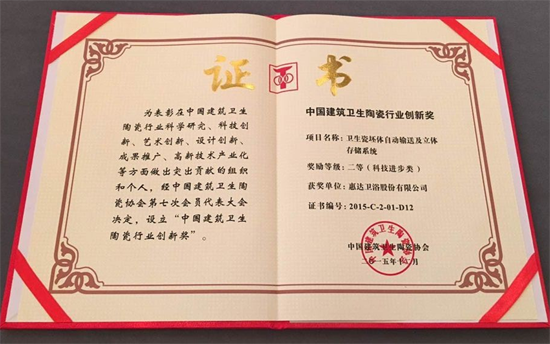 证 书
为表彰在中国建筑卫生
陶瓷行业科学研究、科技创
新、艺术创新、设计创新、
成果推广、高新技术产业化
等方面做出突出贡献的组织
和个人，经中国建筑卫生陶
瓷协会第七次会员代表大会
决定，设立“中国建筑卫生
陶瓷行业创新奖”。
中国建筑卫生陶瓷行业创新奖
项目名称：卫生瓷坯体自动输送及立体
存储系统
奖励等级：二等（科技进步类）
获奖单位：惠达卫浴股份有限公司
证书编号：2015-C-2-01-D12
中国建筑卫生陶瓷协会
二〇一五年十二月